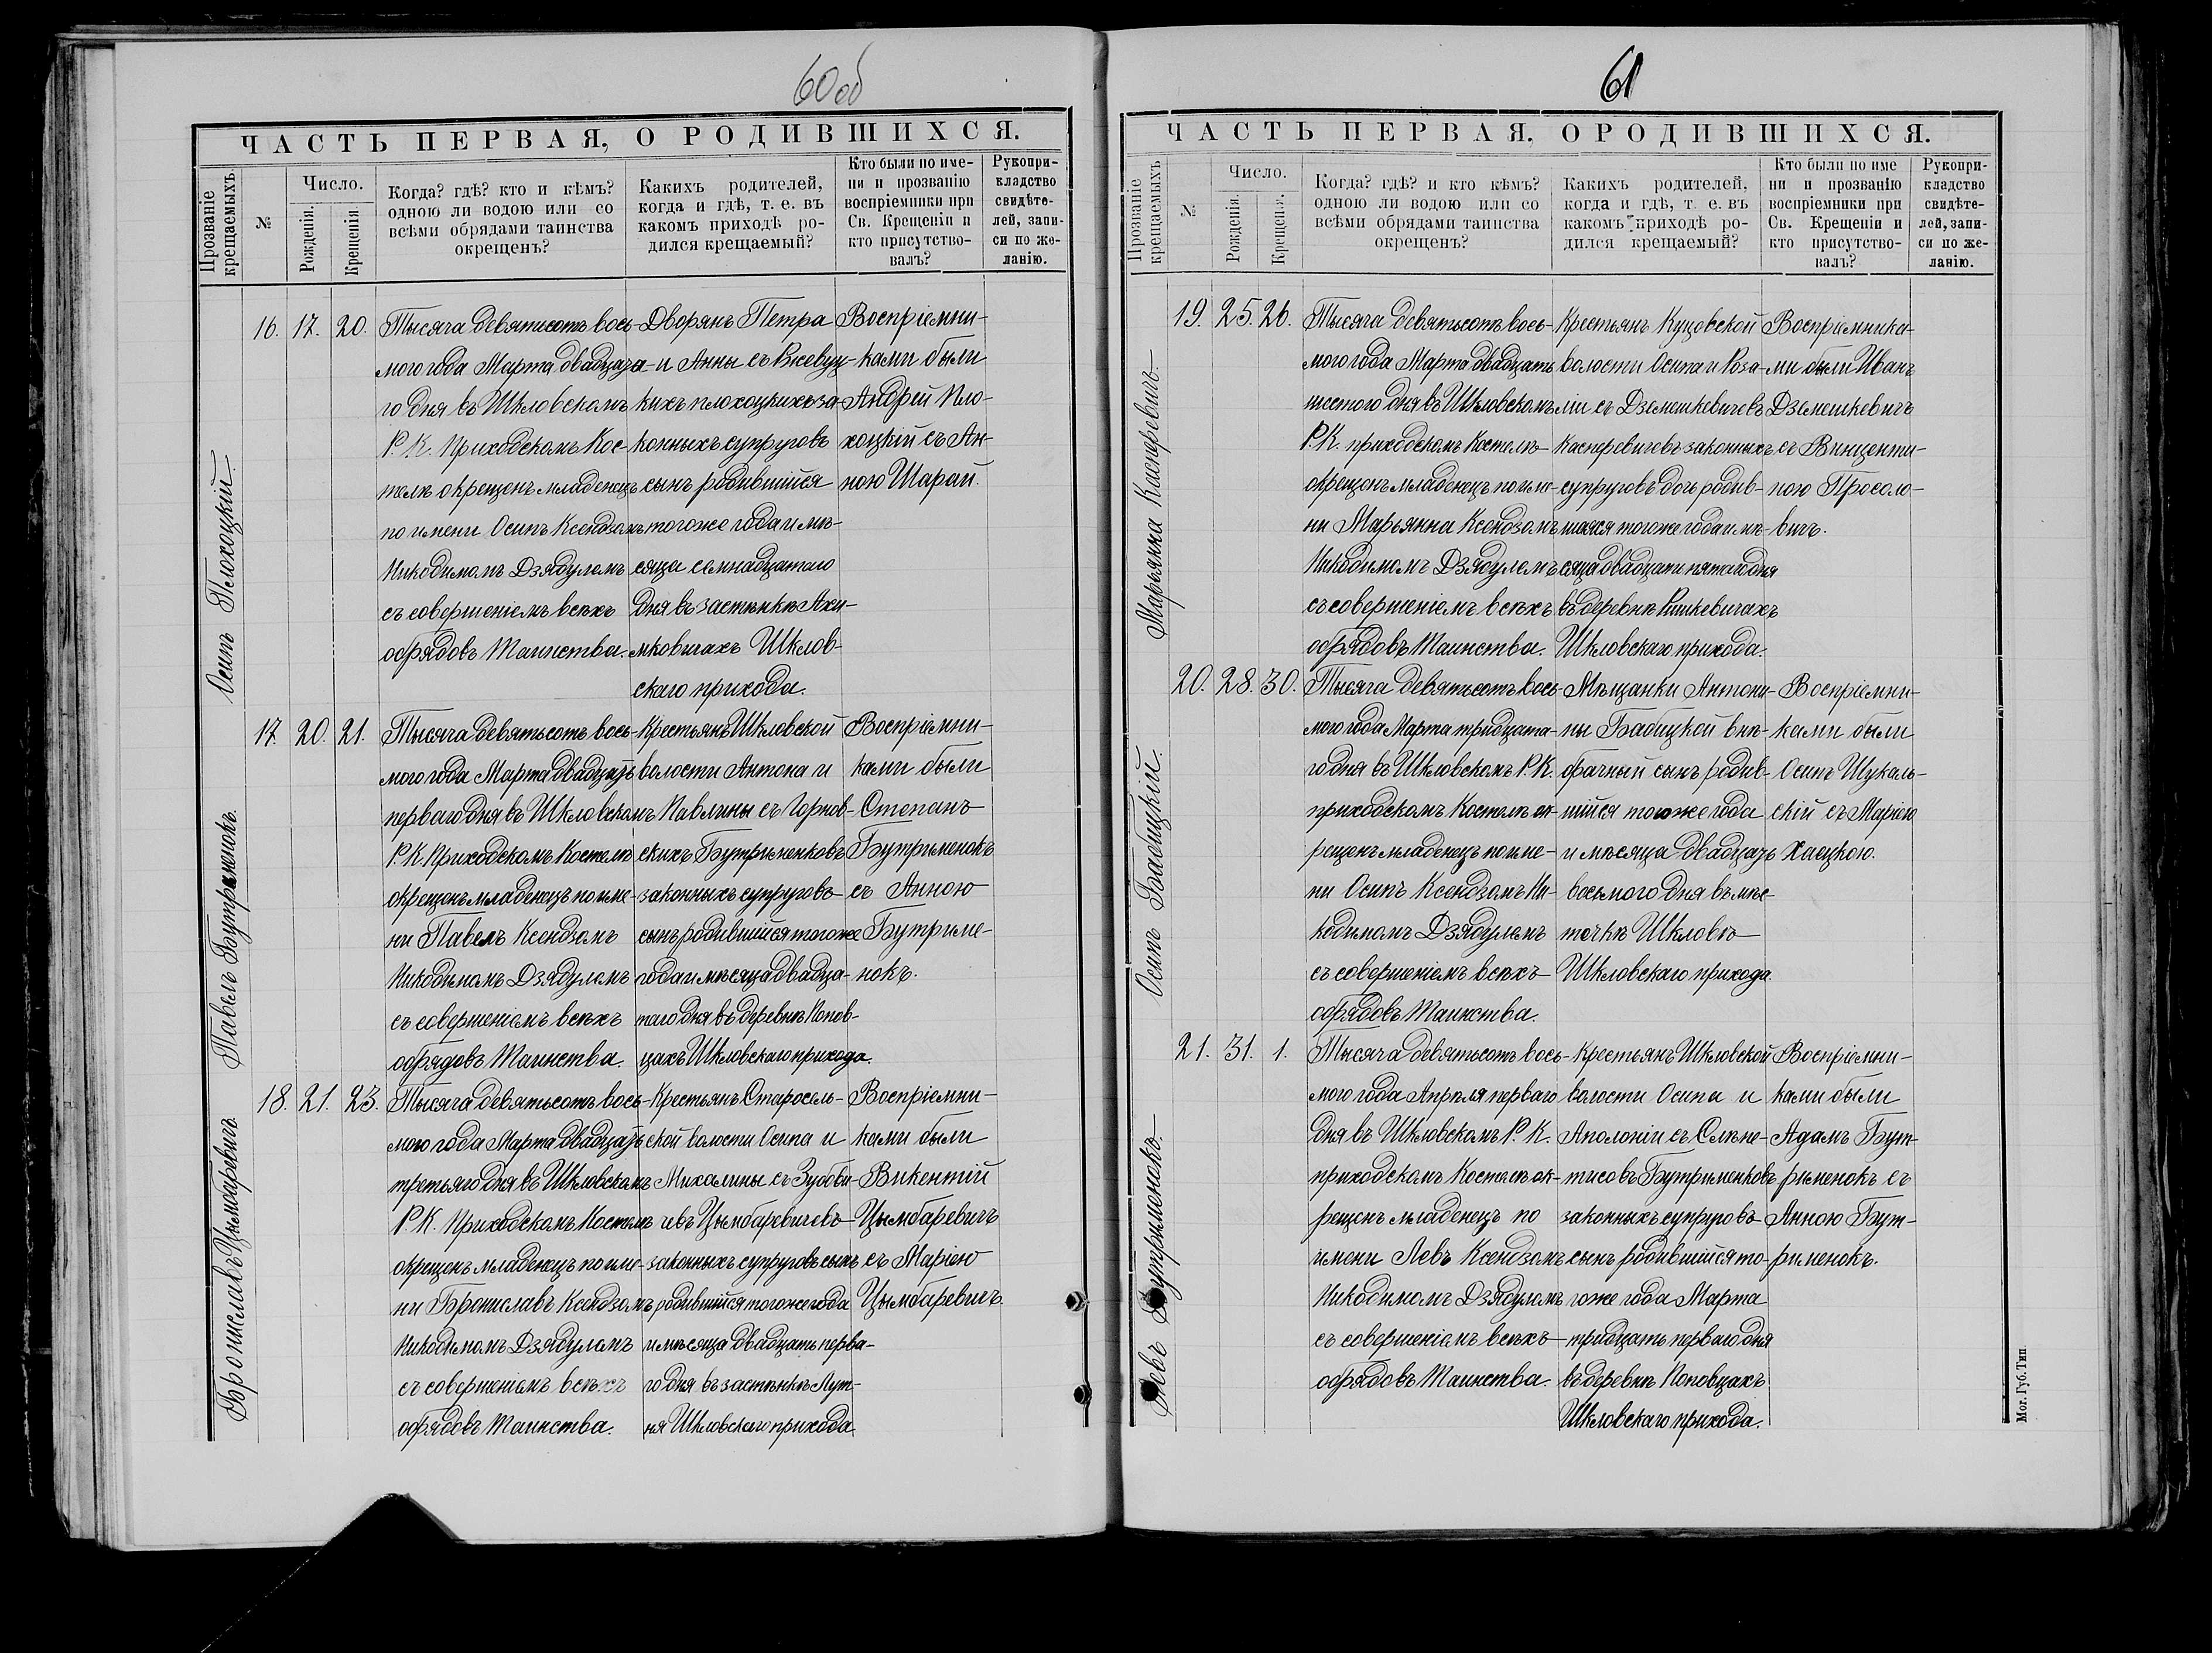 60об
ЧАСТЬ ПЕРВАЯ, О РОДИВШИХСЯ.
Прозваніе крещаемыхъ.
№
Число.
Рожденія.
Крещенія
Когда? гдѣ? кто и кѣмъ?
одною ли водою или со
всѣми обрядами таинства
окрещенъ?
Какихъ родителей,
когда и гдѣ, т. е. въ
какомъ приходѣ ро-
дился крещаемый?
Кто были по име-
ни и прозванію
воспріемники при
Св. Крещеніи и
кто присутство-
валъ?
Рукопри-
кладство
свидѣте-
лей, запи-
си по же-
ланію.
Осипъ Плохоцкій.
16. 17. 20.
Тысяча девятисотъ вось-
мого года Марта двадцата-
го дня въ Шкловскомъ
Р. К. Приходскомъ Кос-
телѣ окрещенъ младенецъ
по имени Осипъ Ксендзомъ
Никодимомъ Дзядулемъ
съ совершеніемъ всѣхъ
обрядовъ Таинства.
Дворянъ Петра
и Анны съ Ржевуц-
кихъ Плохоцкихъ за-
конныхъ супруговъ
сынъ родившійся
того же года и мѣ-
сяца семнадцатаго
дня въ застѣнкѣ Ахи-
мковичахъ Шклов-
скаго прихода.
Воспріемни-
ками были
Андрей Пло-
хоцкій съ Ан-
ною Шарай.
Павелъ Бутрименокъ.
17. 20. 21.
Тысяча девятьсотъ вось-
мого года Марта двадцать
перваго дня въ Шкловскомъ
Р. К. Приходскомъ Костелѣ
окрещенъ младенецъ по име-
ни Павелъ Ксендзомъ
Никодимомъ Дзядулемъ
съ совершеніемъ всѣхъ
обрядовъ Таинства.
Крестьянъ Шкловской
волости Антона и
Павлины съ Горнов-
скихъ Бутрименковъ
законныхъ супруговъ
сынъ родившійся тогоже
года и мѣсяца двадца-
таго дня въ деревнѣ Попов-
цахъ Шкловскаго прихода.
Воспріемни-
ками были
Степанъ
Бутрименокъ
съ Анною
Бутриме-
нокъ.
Брониславъ Цымбаревичъ
18. 21. 23.
Тысяча девятьсотъ вось-
мого года Марта двадцать
третьяго дня въ Шкловскомъ
Р. К. Приходскомъ Костелѣ
окрещенъ младенецъ по име-
ни Брониславъ Ксендзомъ
Никодимомъ Дзядулемъ
съ совершеніемъ всѣхъ
обрядовъ Таинства.
Крестьянъ Старосель-
ской волости Осипа и
Михалины съ Зубови-
чевъ Цымбаревичевъ
законныхъ супруговъ сынъ
родившійся тогоже года
и мѣсяца двадцать перва-
го дня въ застѣнкѣ Лут-
ня Шкловскаго прихода
Воспріемни-
ками были
Викентій
Цымбаревичъ
съ Маріею
Цымбаревичъ.
61
ЧАСТЬ ПЕРВАЯ. О РОДИВШИХСЯ.
Прозваніе крещаемыхъ
№
Число.
Рожденія.
Крещенія.
Когда? гдѣ? и кто кѣмъ?
одною ли водою или со
всѣми обрядами таинства
окрещенъ?
Какихъ родителей,
когда и гдѣ, т. е. въ
какомъ приходѣ ро-
дился крещаемый?
Кто были по име
ни и прозванію
воспріемники при
Св. Крещеніи и
кто присутство-
валъ?
Рукопри-
кладство
свидѣте-
лей, запи-
си по же-
ланію.
Марьянна Касперевичъ.
19. 25. 26.
Тысяча девятьсотъ вось-
мого года Марта двадцать
шестого дня въ Шкловскомъ
Р. К. приходскомъ Костелѣ
окрещенъ младенецъ по име-
ни Марьянна Ксендзомъ
Никодимомъ Дзядулемъ
съ совершеніемъ всѣхъ
обрядовъ Таинства.
Крестьянъ Куцовской
волости Осипа и Роза-
ліи съ Дземешкевичевъ
Касперевичевъ законныхъ
супруговъ дочь родив-
шаяся тогоже года и мѣ-
сяца двадцати пятаго дня
въ деревнѣ Ришкевичахъ
Шкловскаго прихода.
Воспріемника-
ми были Иванъ
Дземешкевичъ
съ Винценти-
ною Просоло-
вичъ.
Осипъ Бабицкій.
20. 28. 30.
Тысяча девятьсотъ вось-
мого года Марта тридцата-
го дня въ Шкловскомъ Р. К.
приходскомъ Костелѣ ок-
рещенъ младенецъ по име-
ни Осипъ Ксендзомъ Ни-
кодимомъ Дзядулемъ
съ совершеніемъ всѣхъ
обрядовъ Таинства.
Мѣщанки Антони-
ны Бабицкой внѣ-
брачный сынъ родив-
шійся того же года
и мѣсяца двадцать
восьмого дня въ мѣс-
течкѣ Шкловѣ
Шкловскаго прихода
Воспріемни-
ками были
Осипъ Шукаль-
скій съ Маріею
Хаецкою.
Левъ Бутрименокъ.
21. 31. 1.
Тысяча девятьсотъ вось-
мого года Апрѣля перваго
дня въ Шкловскомъ Р. К.
приходскомъ Костелѣ ок-
рещенъ младенецъ по
имени Левъ Ксендзомъ
Никодимомъ Дзядулемъ
съ совершеніемъ всѣхъ
обрядовъ Таинства.
Крестьянъ Шкловской
волости Осипа и
Аполоніи съ Слѣпе-
тисовъ Бутрименковъ
законныхъ супруговъ
сынъ родившійся то-
гоже года Марта
тридцать перваго дня
въ деревнѣ Поповцахъ
Шкловскаго прихода.
Воспріемни-
ками были
Адамъ Бут-
рименокъ съ
Анною Бут-
рименокъ.
Мог. Губ. Тип